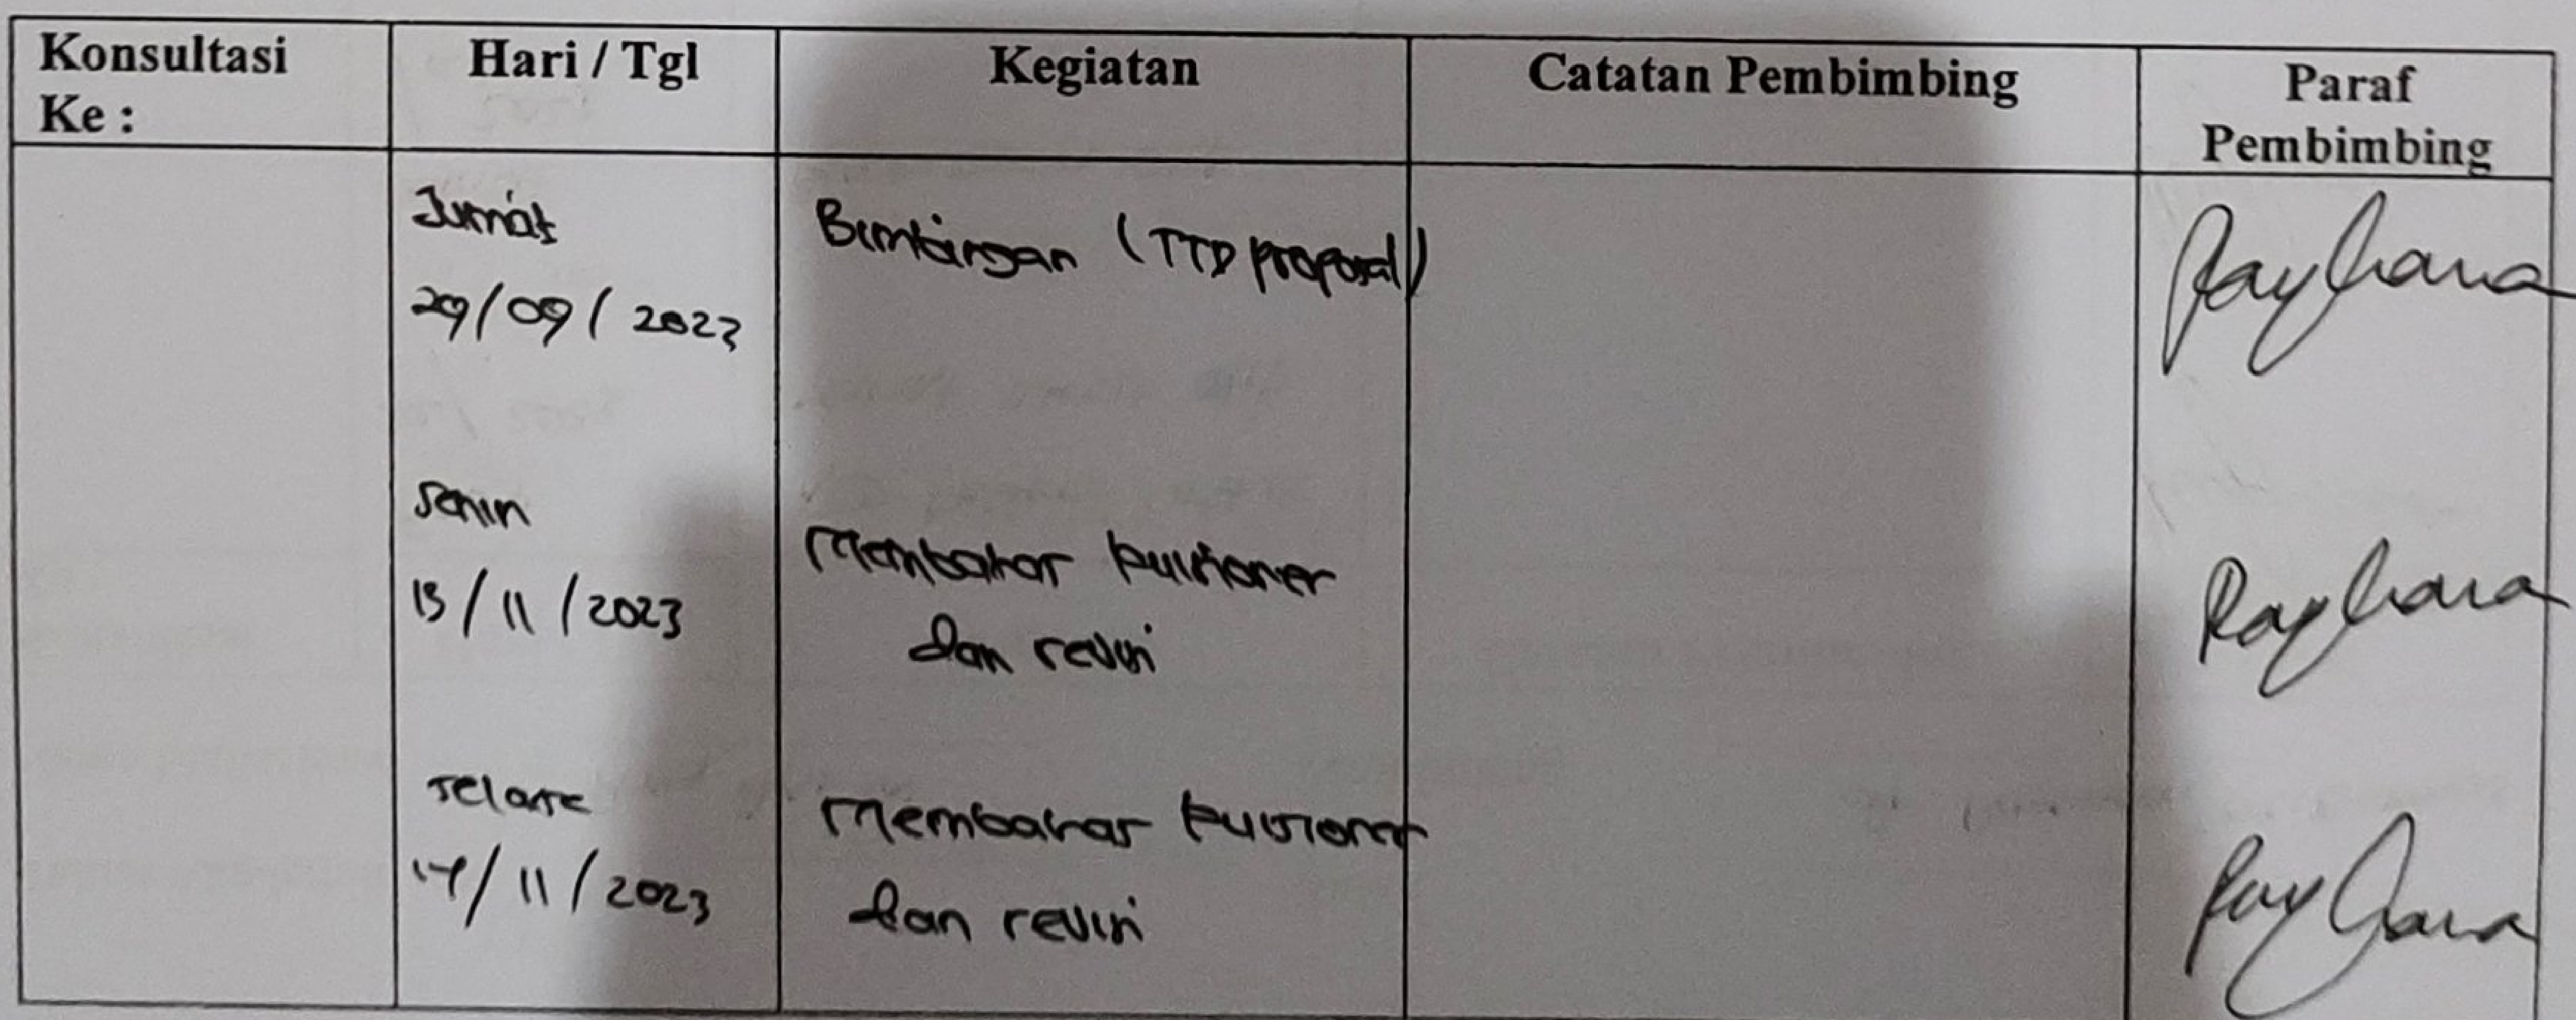 Konsultasi Ke :
Hari / Tgl
Kegiatan
Catatan Pembimbing
Paraf Pembimbing
Jum'at
29/09/2023
Bimbingan (TTD proposal)
Senin
13/11/2023
Membahas kuisioner
dan revisi
Selasa
14/11/2023
Membahas kuisioner
dan revisi